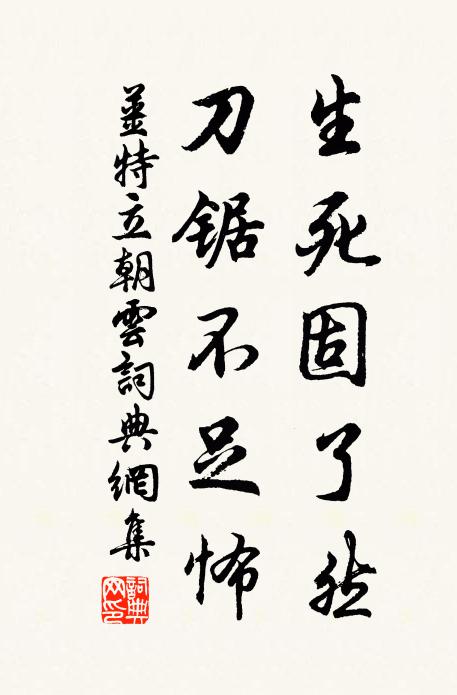 生死固了然
刀鋸不足怖
姜特立朝雲詞典網集
詞典網印